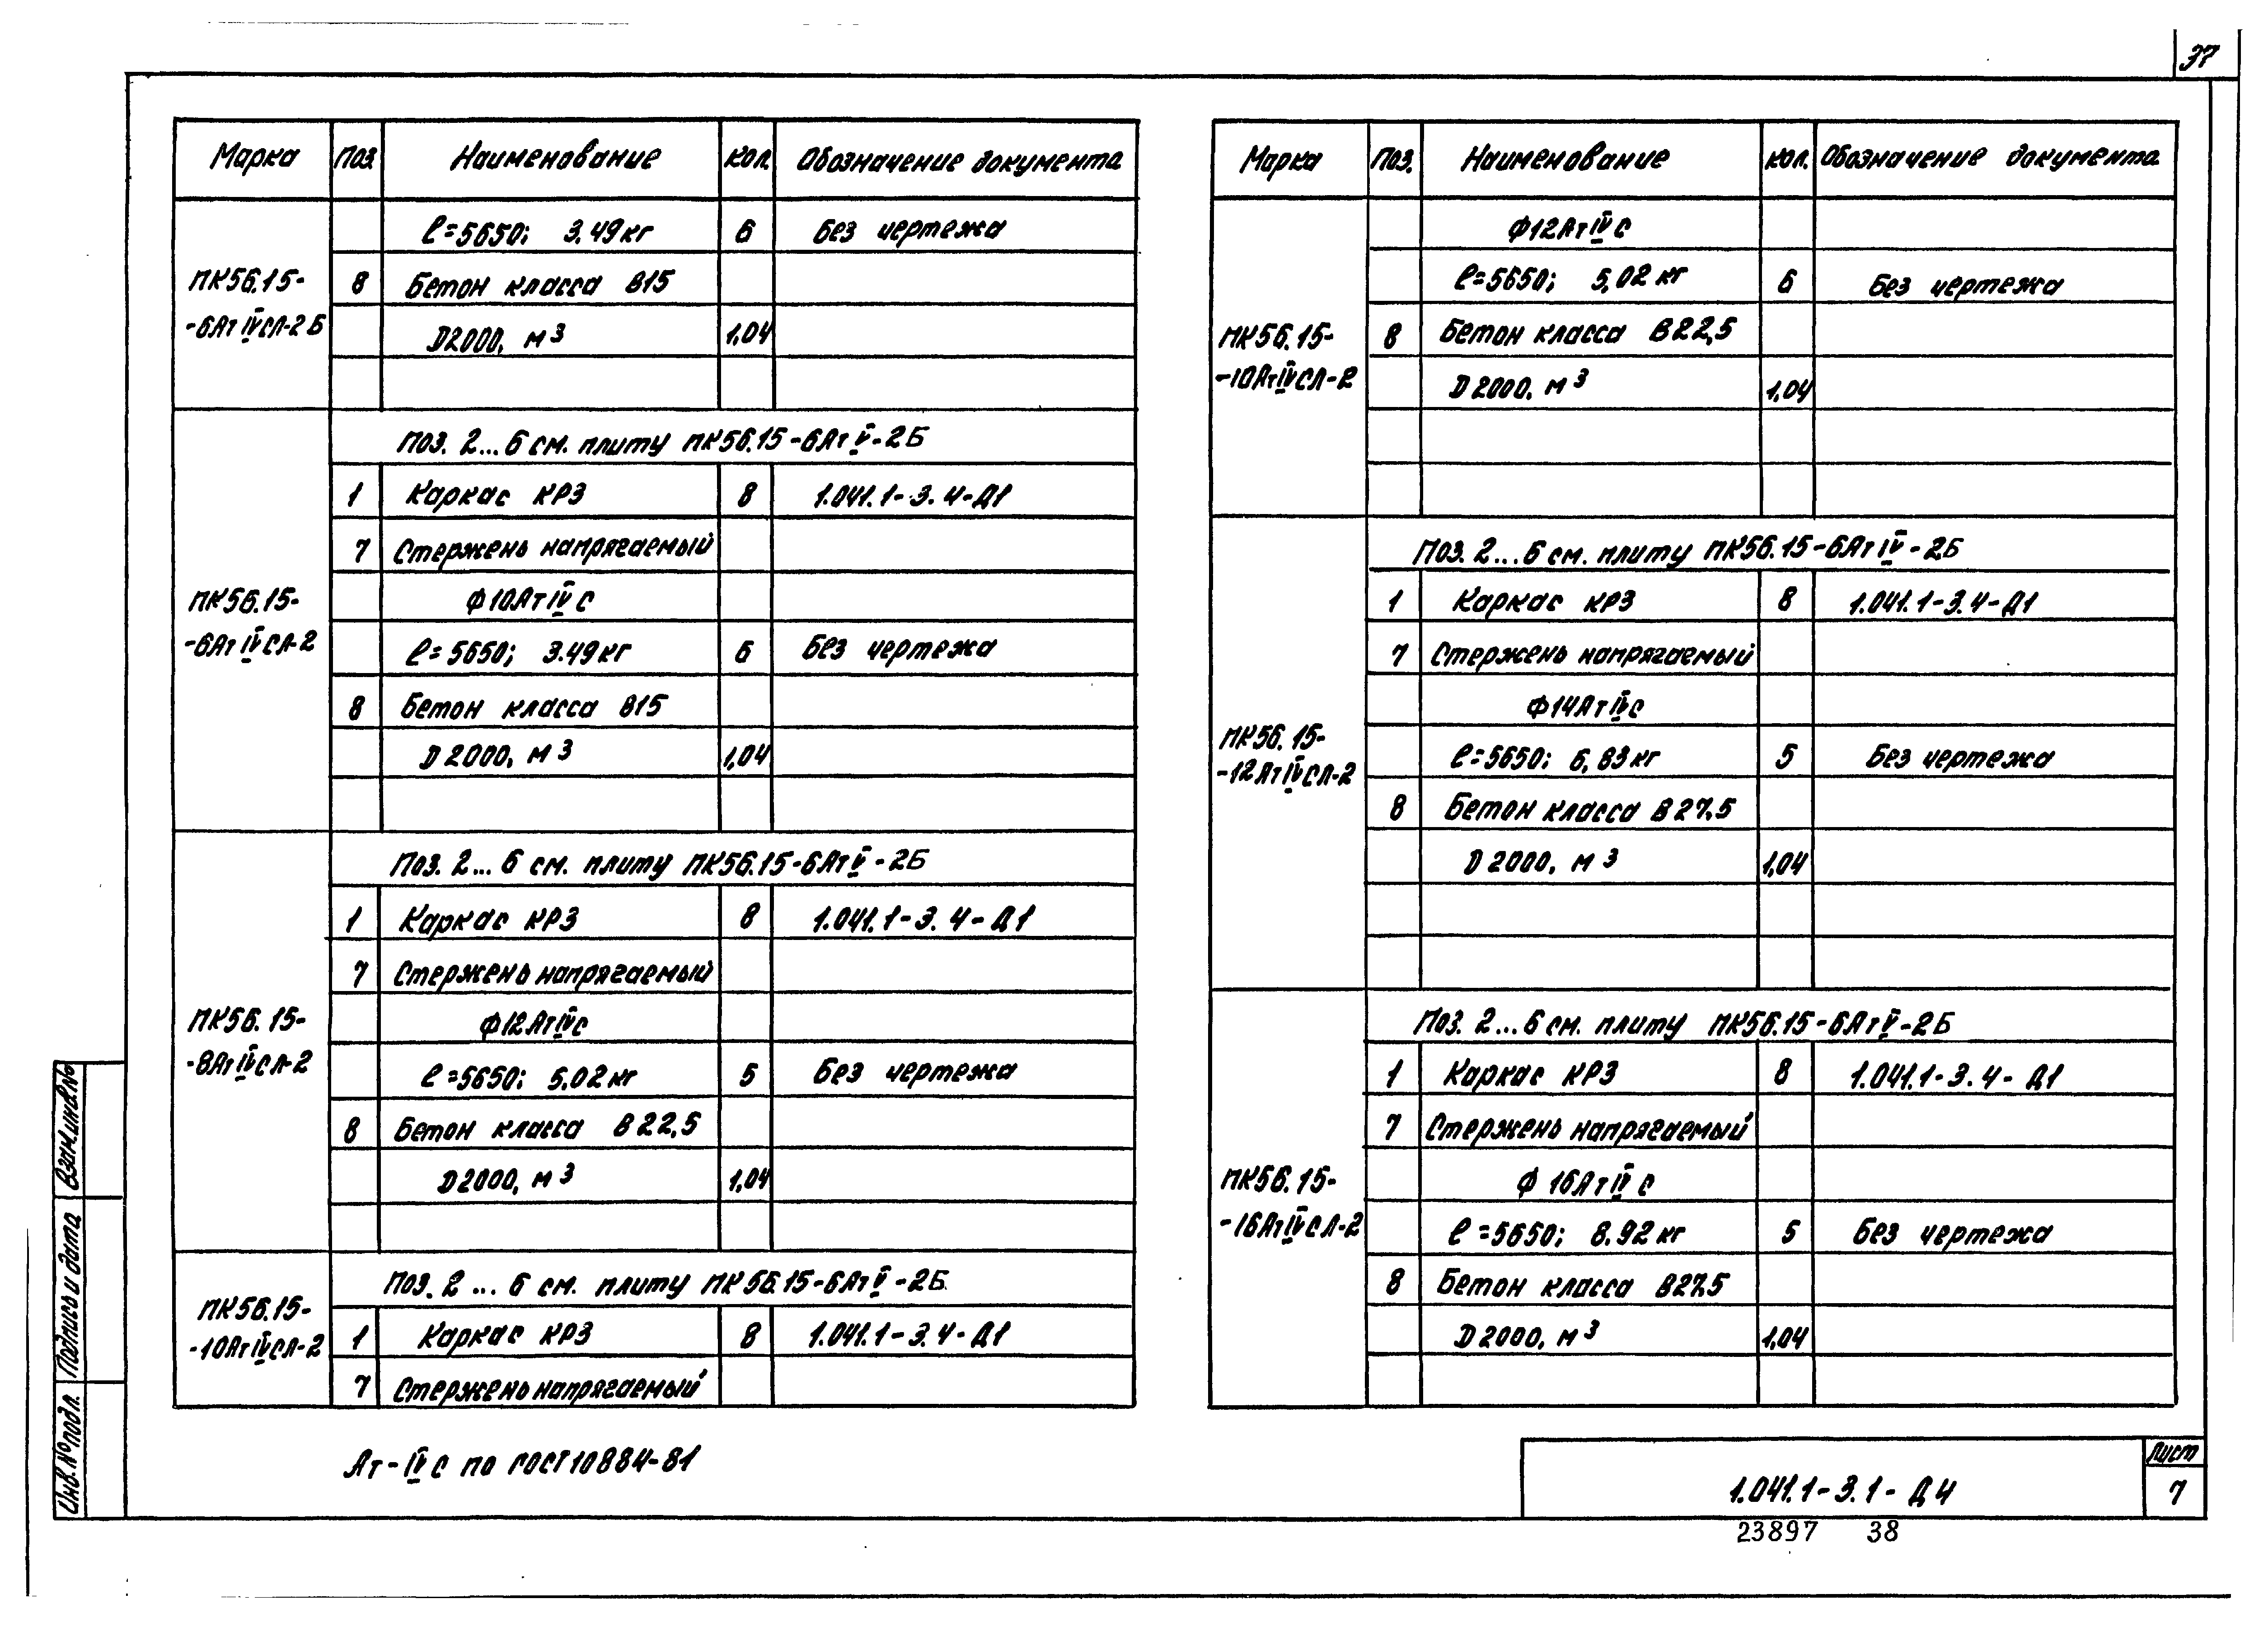 37
Марка Поз. Наименование Кол. Обозначение документа
ПК56.15-
-6АтIVСЛ-2Б
ℓ=5650; 3.49кг 6 Без чертежа
8 Бетон класса В15
D2000, м3 1,04
ПК56.15-
-6АтIVСЛ-2
Поз. 2...6 см. плиту ПК56.15-6АтV-2Б
1 Каркас КР3 8 1.041.1-3.4-Д1
7 Стержень напрягаемый
Ф10АтIVС
ℓ=5650; 3.49кг 6 Без чертежа
8 Бетон класса В15
D2000, м3 1,04
ПК56.15-
-8АтIVСЛ-2
Поз. 2...6 см. плиту ПК56.15-6АтV-2Б
1 Каркас КР3 8 1.041.1-3.4-Д1
7 Стержень напрягаемый
Ф12АтIVС
ℓ=5650; 5.02кг 5 Без чертежа
8 Бетон класса В22,5
D2000, м3 1,04
ПК56.15-
-10АтIVСЛ-2
Поз. 2...6 см. плиту ПК56.15-6АтV-2Б
1 Каркас КР3 8 1.041.1-3.4-Д1
7 Стержень напрягаемый
Марка Поз. Наименование Кол. Обозначение документа
ПК56.15-
-10АтIVСЛ-2
Ф12АтIVС
ℓ=5650; 5,02кг 6 Без чертежа
8 Бетон класса В22,5
D2000, м3 1,04
ПК56.15-
-12АтIVСЛ-2
Поз. 2...6 см. плиту ПК56.15-6АтIV-2Б
1 Каркас КР3 8 1.041.1-3.4-Д1
7 Стержень напрягаемый
Ф14АтIVС
ℓ=5650; 6,83кг 5 Без чертежа
8 Бетон класса В27,5
D2000, м3 1,04
ПК56.15-
-16АтIVСЛ-2
Поз. 2...6 см. плиту ПК56.15-6АтV-2Б
1 Каркас КР3 8 1.041.1-3.4-Д1
7 Стержень напрягаемый
Ф16АтIVС
ℓ=5650; 8.92кг 5 Без чертежа
8 Бетон класса В27,5
D2000, м3 1,04
Ат-IVС по ГОСТ10884-81
Взам.инв.№
Подпись и дата
Инв.№подл.
1.041.1-3.1-Д4
Лист
7
23897 38